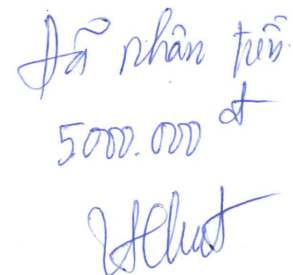 Đã nhận tiền
5000.000 đ